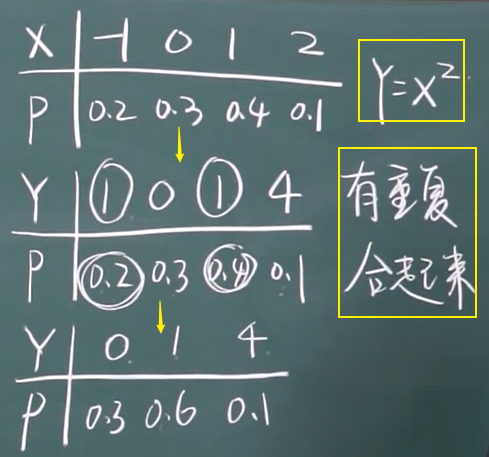 X -1 0 1 2
P 0.2 0.3 0.4 0.1
Y=X²
Y 1 0 1 4
P 0.2 0.3 0.4 0.1
有重复
合起来
Y 0 1 4
P 0.3 0.6 0.1